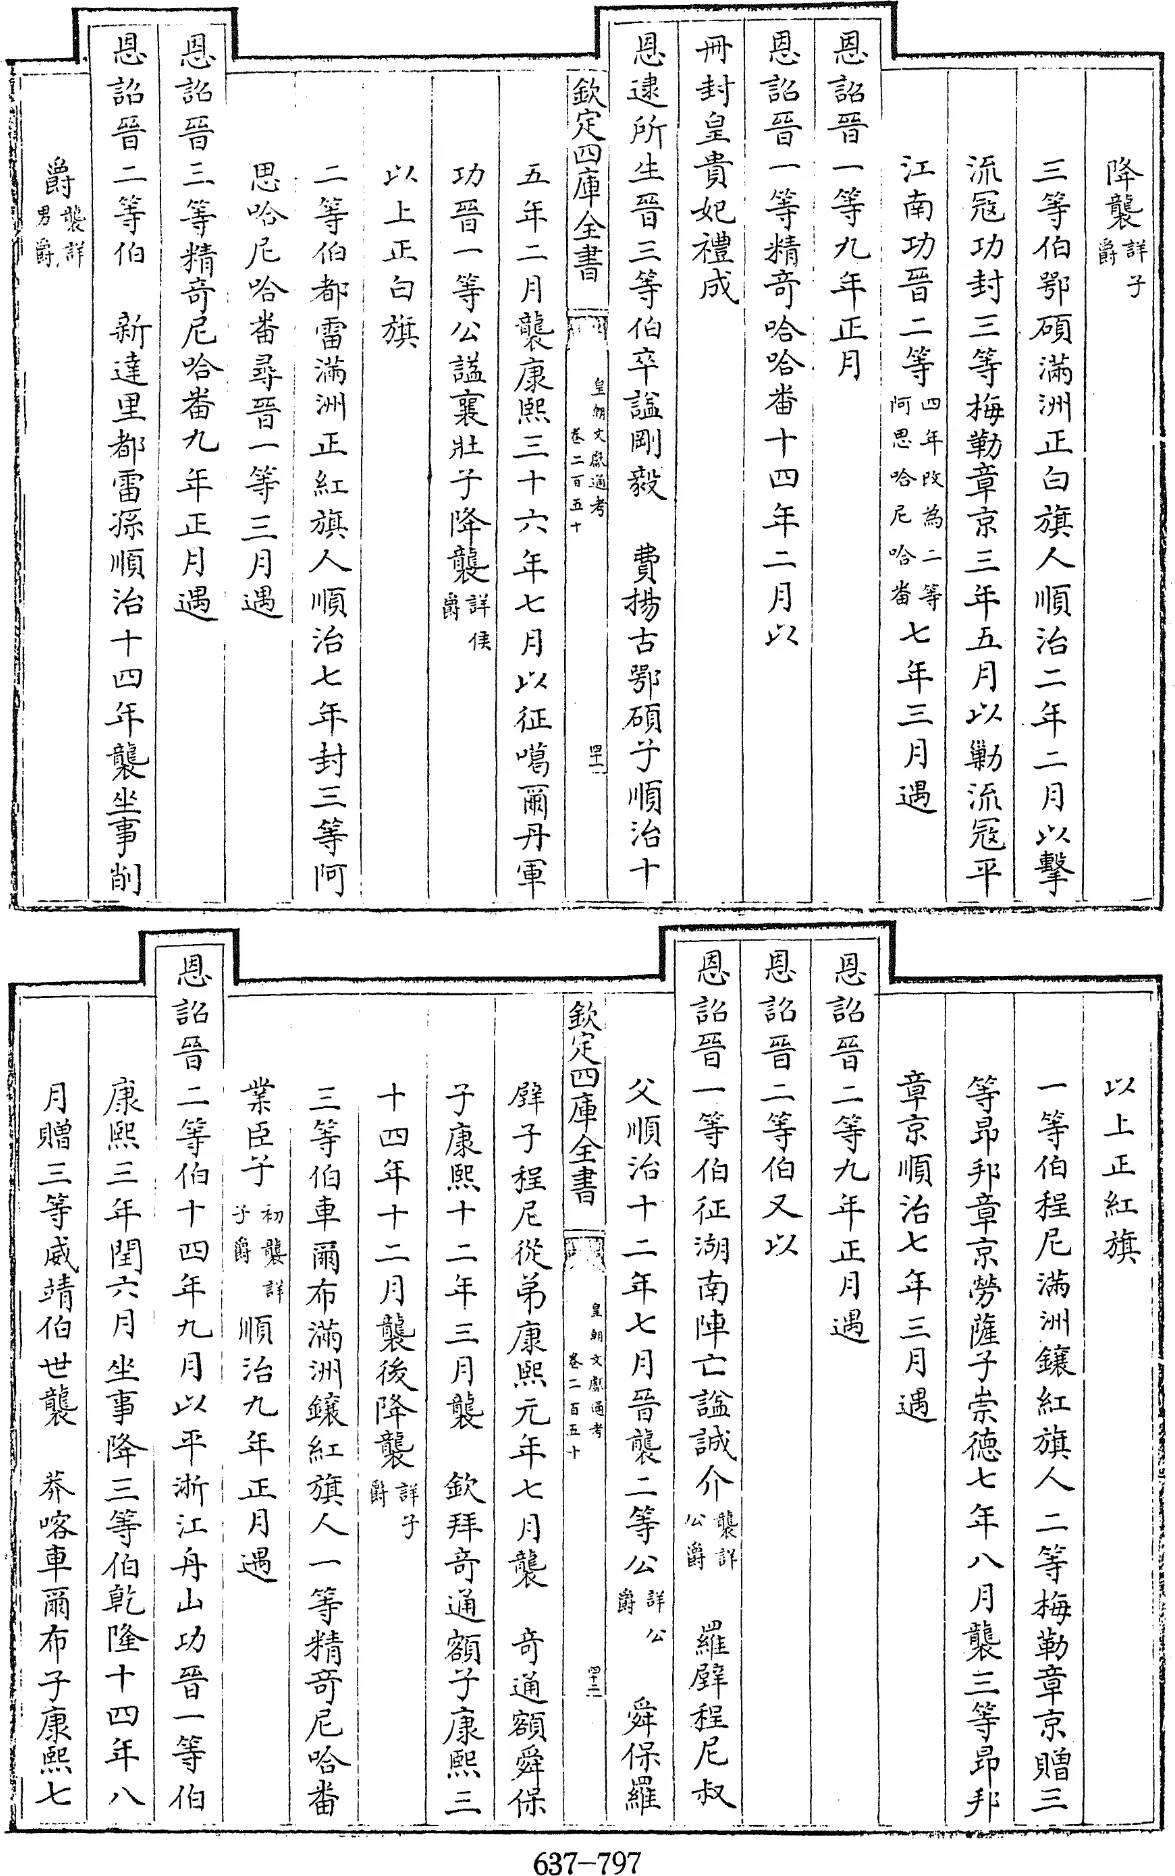 降襲詳子爵
三等伯鄂碩滿洲正白旗人順治二年二月以擊
流冦功封三等梅勒章京三年五月以勦流冦平
江南功晉二等四年改為二等阿思哈尼哈番七年三月遇
恩詔晉一等九年正月
恩詔晉一等精奇哈哈番十四年二月以
冊封皇貴妃禮成
恩逮所生晉三等伯卒謚剛毅　費揚古鄂碩子順治十
欽定四庫全書
皇朝文獻通考
卷二百五十
四十二
五年二月襲康熙三十六年七月以征噶爾丹軍
功晉一等公謚襄壯子降襲詳侯爵
以上正白旗
二等伯都雷滿洲正紅旗人順治七年封三等阿
思哈尼哈番尋晉一等三月遇
恩詔晉三等精奇尼哈番九年正月遇
恩詔晉二等伯　新達里都雷孫順治十四年襲坐事削
爵襲詳男爵
以上正紅旗
一等伯程尼滿洲鑲紅旗人二等梅勒章京贈三
等昂邦章京勞薩子崇德七年八月襲三等昂邦
章京順治七年三月遇
恩詔晉二等九年正月遇
恩詔晉二等伯又以
恩詔晉一等伯征湖南陣亡謚誠介襲詳公爵　羅壁程尼叔
父順治十二年七月晉襲二等公詳公爵　舜保羅
欽定四庫全書
皇朝文獻通考
卷二百五十
四十三
壁子程尼從弟康熙元年七月襲　奇通額舜保
子康熙十二年三月襲　欽拜奇通額子康熙三
十四年十二月襲後降襲詳子爵
三等伯車爾布滿洲鑲紅旗人一等精奇尼哈番
業臣子初襲詳子爵順治九年正月遇
恩詔晉二等伯十四年九月以平浙江舟山功晉一等伯
康熙三年閏六月坐事降三等伯乾隆十四年八
月贈三等威靖伯世襲　莽喀車爾布子康熙七
637-797